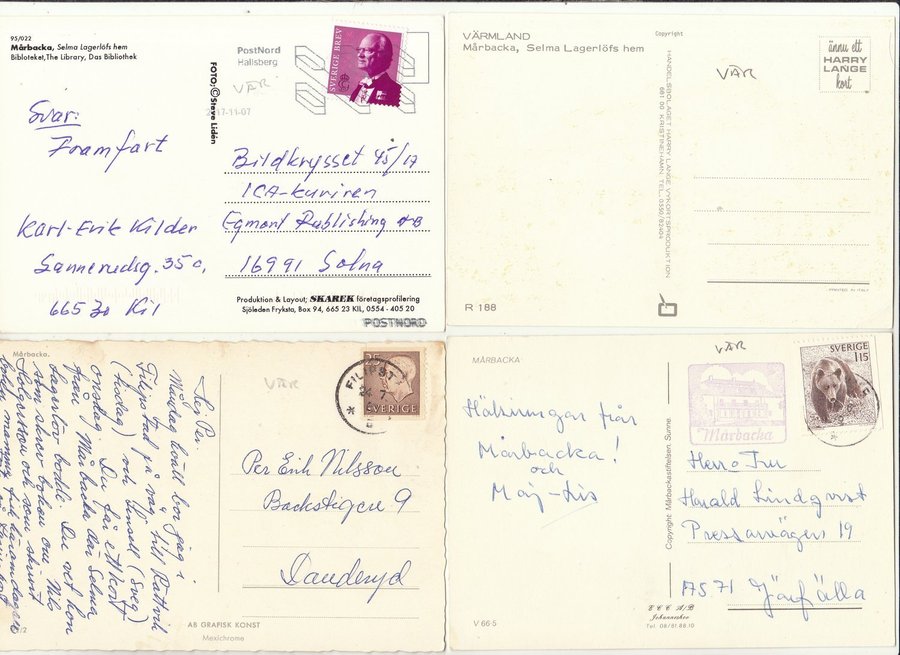 95/022
Mårbacka, Selma Lagerlöfs hem
Biblioteket,The Library, Das Bibliothek
FOTO: ©Steve Lidén
PostNord
Hallsberg
VÄR
2017-11-07
SVERIGE BREV
Svar:
Framfart
Karl-Erik Kilder
Sannerudsg. 35 c,
665 30 Kil
Bildkrysset 45/17
ICA-kuriren
Egmont Publishing AB
169 91 Solna
Produktion & Layout; SKAREK företagsprofilering
Sjöleden Fryksta, Box 94, 665 23 KIL, 0554 - 405 20
POSTNORD
VÄRMLAND
Mårbacka, Selma Lagerlöfs hem
Copyright
VÄR
ännu ett
HARRY
LANGE
kort
HANDELSBOLAGET HARRY LANGE VYKORTSPRODUKTION
681 00 KRISTINEHAMN TEL. 0550/82404
R 188
PRINTED IN ITALY
Mårbacka.
VÄR
25
SVERIGE
FILIPST
24 7
Hej Per.
Måndag kväll bor jag i
Filipstad på väg till Rättvik
(tisdag) och Linsell (Sveg)
onsdag. Du får ett kort
från Mårbacka där Selma
Lagerlöv bodde. Du vet hon
som skrev boken om Nils
Holgersson och som
Per Erik Nilsson
Backstigen 9
Danderyd
AB GRAFISK KONST
Mexichrome
MÅRBACKA
VÄR
Mårbacka
SVERIGE
115
Hälsningar från
Mårbacka!
och
Maj-Lis
Copyright: Mårbackastiftelsen, Sunne.
Herr o Fru
Harald Lindqvist
Pressarvägen 19
175 71 Järfälla
V 66-5
E C C A/B
Johanneshov
Tel 08/81 88 10